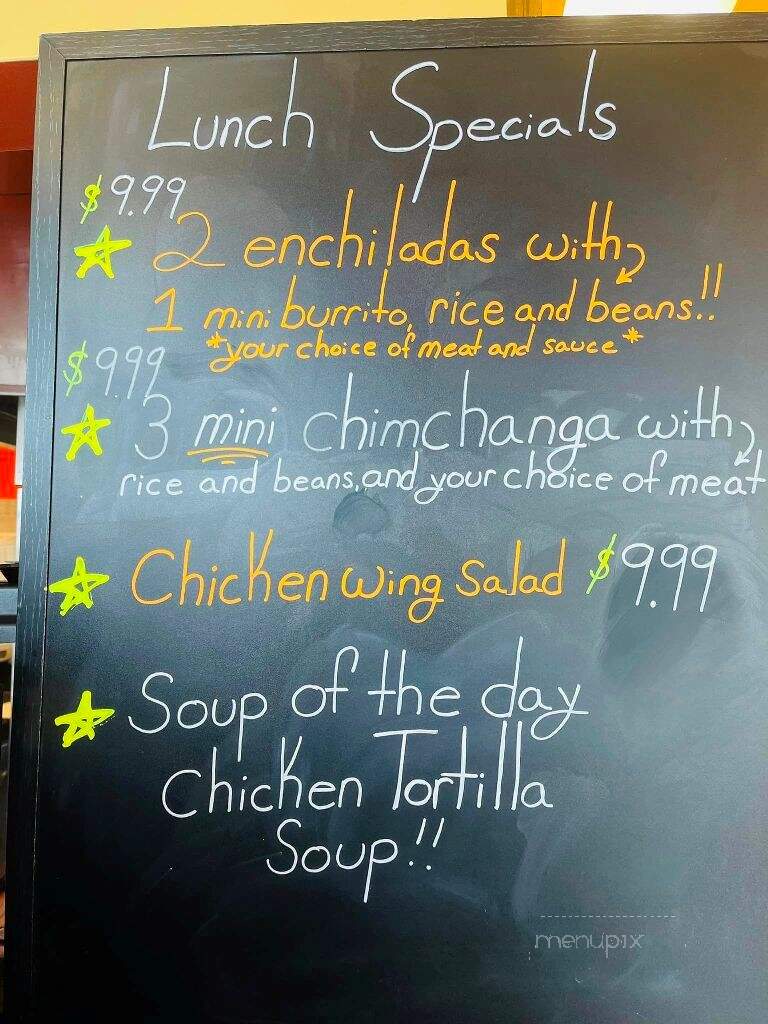 Lunch Specials
$9.99
2 enchiladas with
1 mini burrito, rice and beans!!
*your choice of meat and sauce*
$9.99
3 mini chimchanga with
rice and beans, and your choice of meat
Chicken wing Salad $9.99
Soup of the day
Chicken Tortilla
Soup!!
menupix